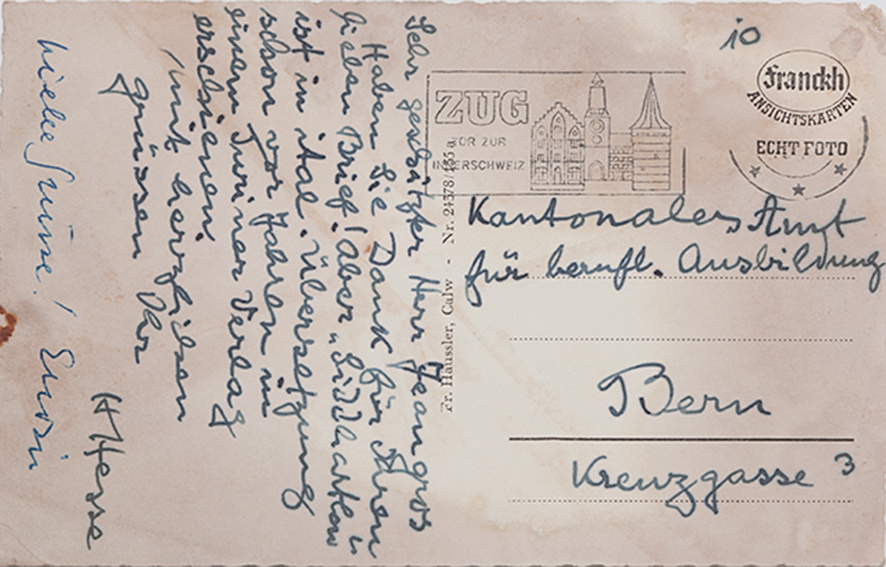 Sehr geschätzter Herr Jeangros
Haben Sie Dank für Ihren
lieben Brief! Aber „Siddhartha“
ist in ital. Übersetzung
schon vor Jahren in
einem Turiner Verlag
erschienen.
Mit herzlichen
grüssen Ihr
H Hesse
Liebe Grüsse!
10
Franckh
ANSICHTSKARTEN
ECHT FOTO
ZUG
TOR ZUR
INNERSCHWEIZ
Fr. Häussler, Calw - Nr. 24378/135a
Kantonales Amt
für berufl. Ausbildung
Bern
Kreuzgasse 3